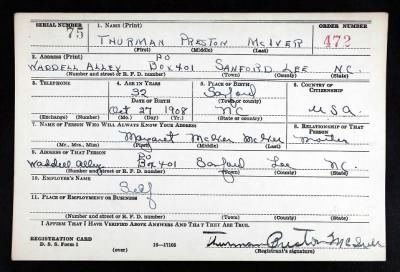 SERIAL NUMBER 1. NAME (Print) ORDER NUMBER
75 THURMAN PRESTON McIVER 472
(First) (Middle) (Last)
2. ADDRESS (Print) PO
WADDELL ALLEY BOX 401 SANFORD LEE NC.
(Number and street or R. F. D. number) (Town) (County) (State)
3. TELEPHONE 4. AGE IN YEARS 5. PLACE OF BIRTH 6. COUNTRY OF CITIZENSHIP
32 Sanford
DATE OF BIRTH (Town or county)
Oct 27 1908 NC USA
(Exchange) (Number) (Mo.) (Day) (Yr.) (State or country)
7. NAME OF PERSON WHO WILL ALWAYS KNOW YOUR ADDRESS 8. RELATIONSHIP OF THAT PERSON
Margaret McIver Mother
(Mr., Mrs., Miss) (First) (Middle) (Last)
9. ADDRESS OF THAT PERSON PO
Waddell Alley Box 401 Sanford Lee NC.
(Number and street or R. F. D. number) (Town) (County) (State)
10. EMPLOYER'S NAME
Self
11. PLACE OF EMPLOYMENT OR BUSINESS
(Number and street or R. F. D. number) (Town) (County) (State)
I AFFIRM THAT I HAVE VERIFIED ABOVE ANSWERS AND THAT THEY ARE TRUE.
REGISTRATION CARD
D. S. S. Form 1 16—17105 Thurman Preston McIver
(over) (Registrant's signature)